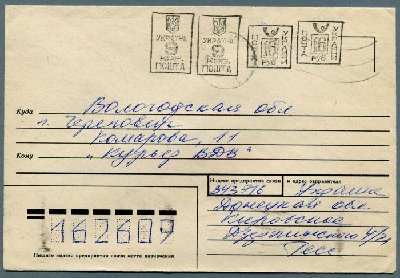 УКРАЇНА УКРАЇНА
9 9
ПОШТА ПОШТА
РУБ РУБ
Куда Вологодская обл
г. Череповец
Комарова, 11
Кому "Курьер ВДВ"
Индекс предприятия связи и адрес отправителя
343716 Украина
Донецкая обл.
Кировское
162609
Пишите индекс предприятия связи места назначения